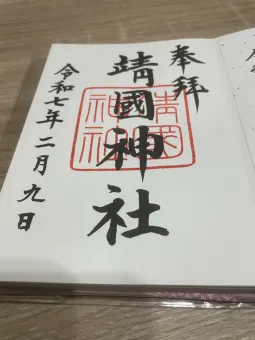 奉拝
靖國神社
靖國
神社
令和七年二月九日